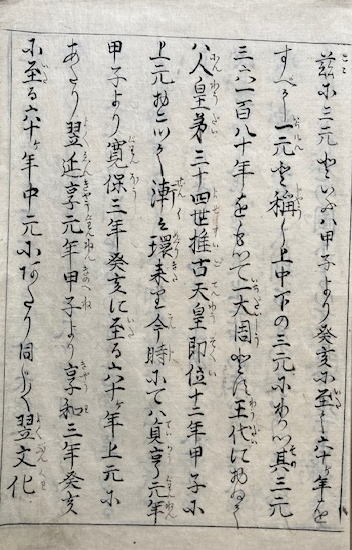 茲に三元といふハ甲子より癸亥に至る六十ヶ年を
すべて一元と稱し上中下の三元にわかつ其三元
三六一百八十年をもつて一大周とす王代におゐて
ハ人皇第三十四世推古天皇即位十二年甲子に
上元おこつて漸々環来す今時にてハ貞享元年
甲子より寛保三年癸亥に至る六十ヶ年上元に
あたり翌延享元年甲子より享和三年癸亥
に至る六十ヶ年中元にあたり同じく翌文化